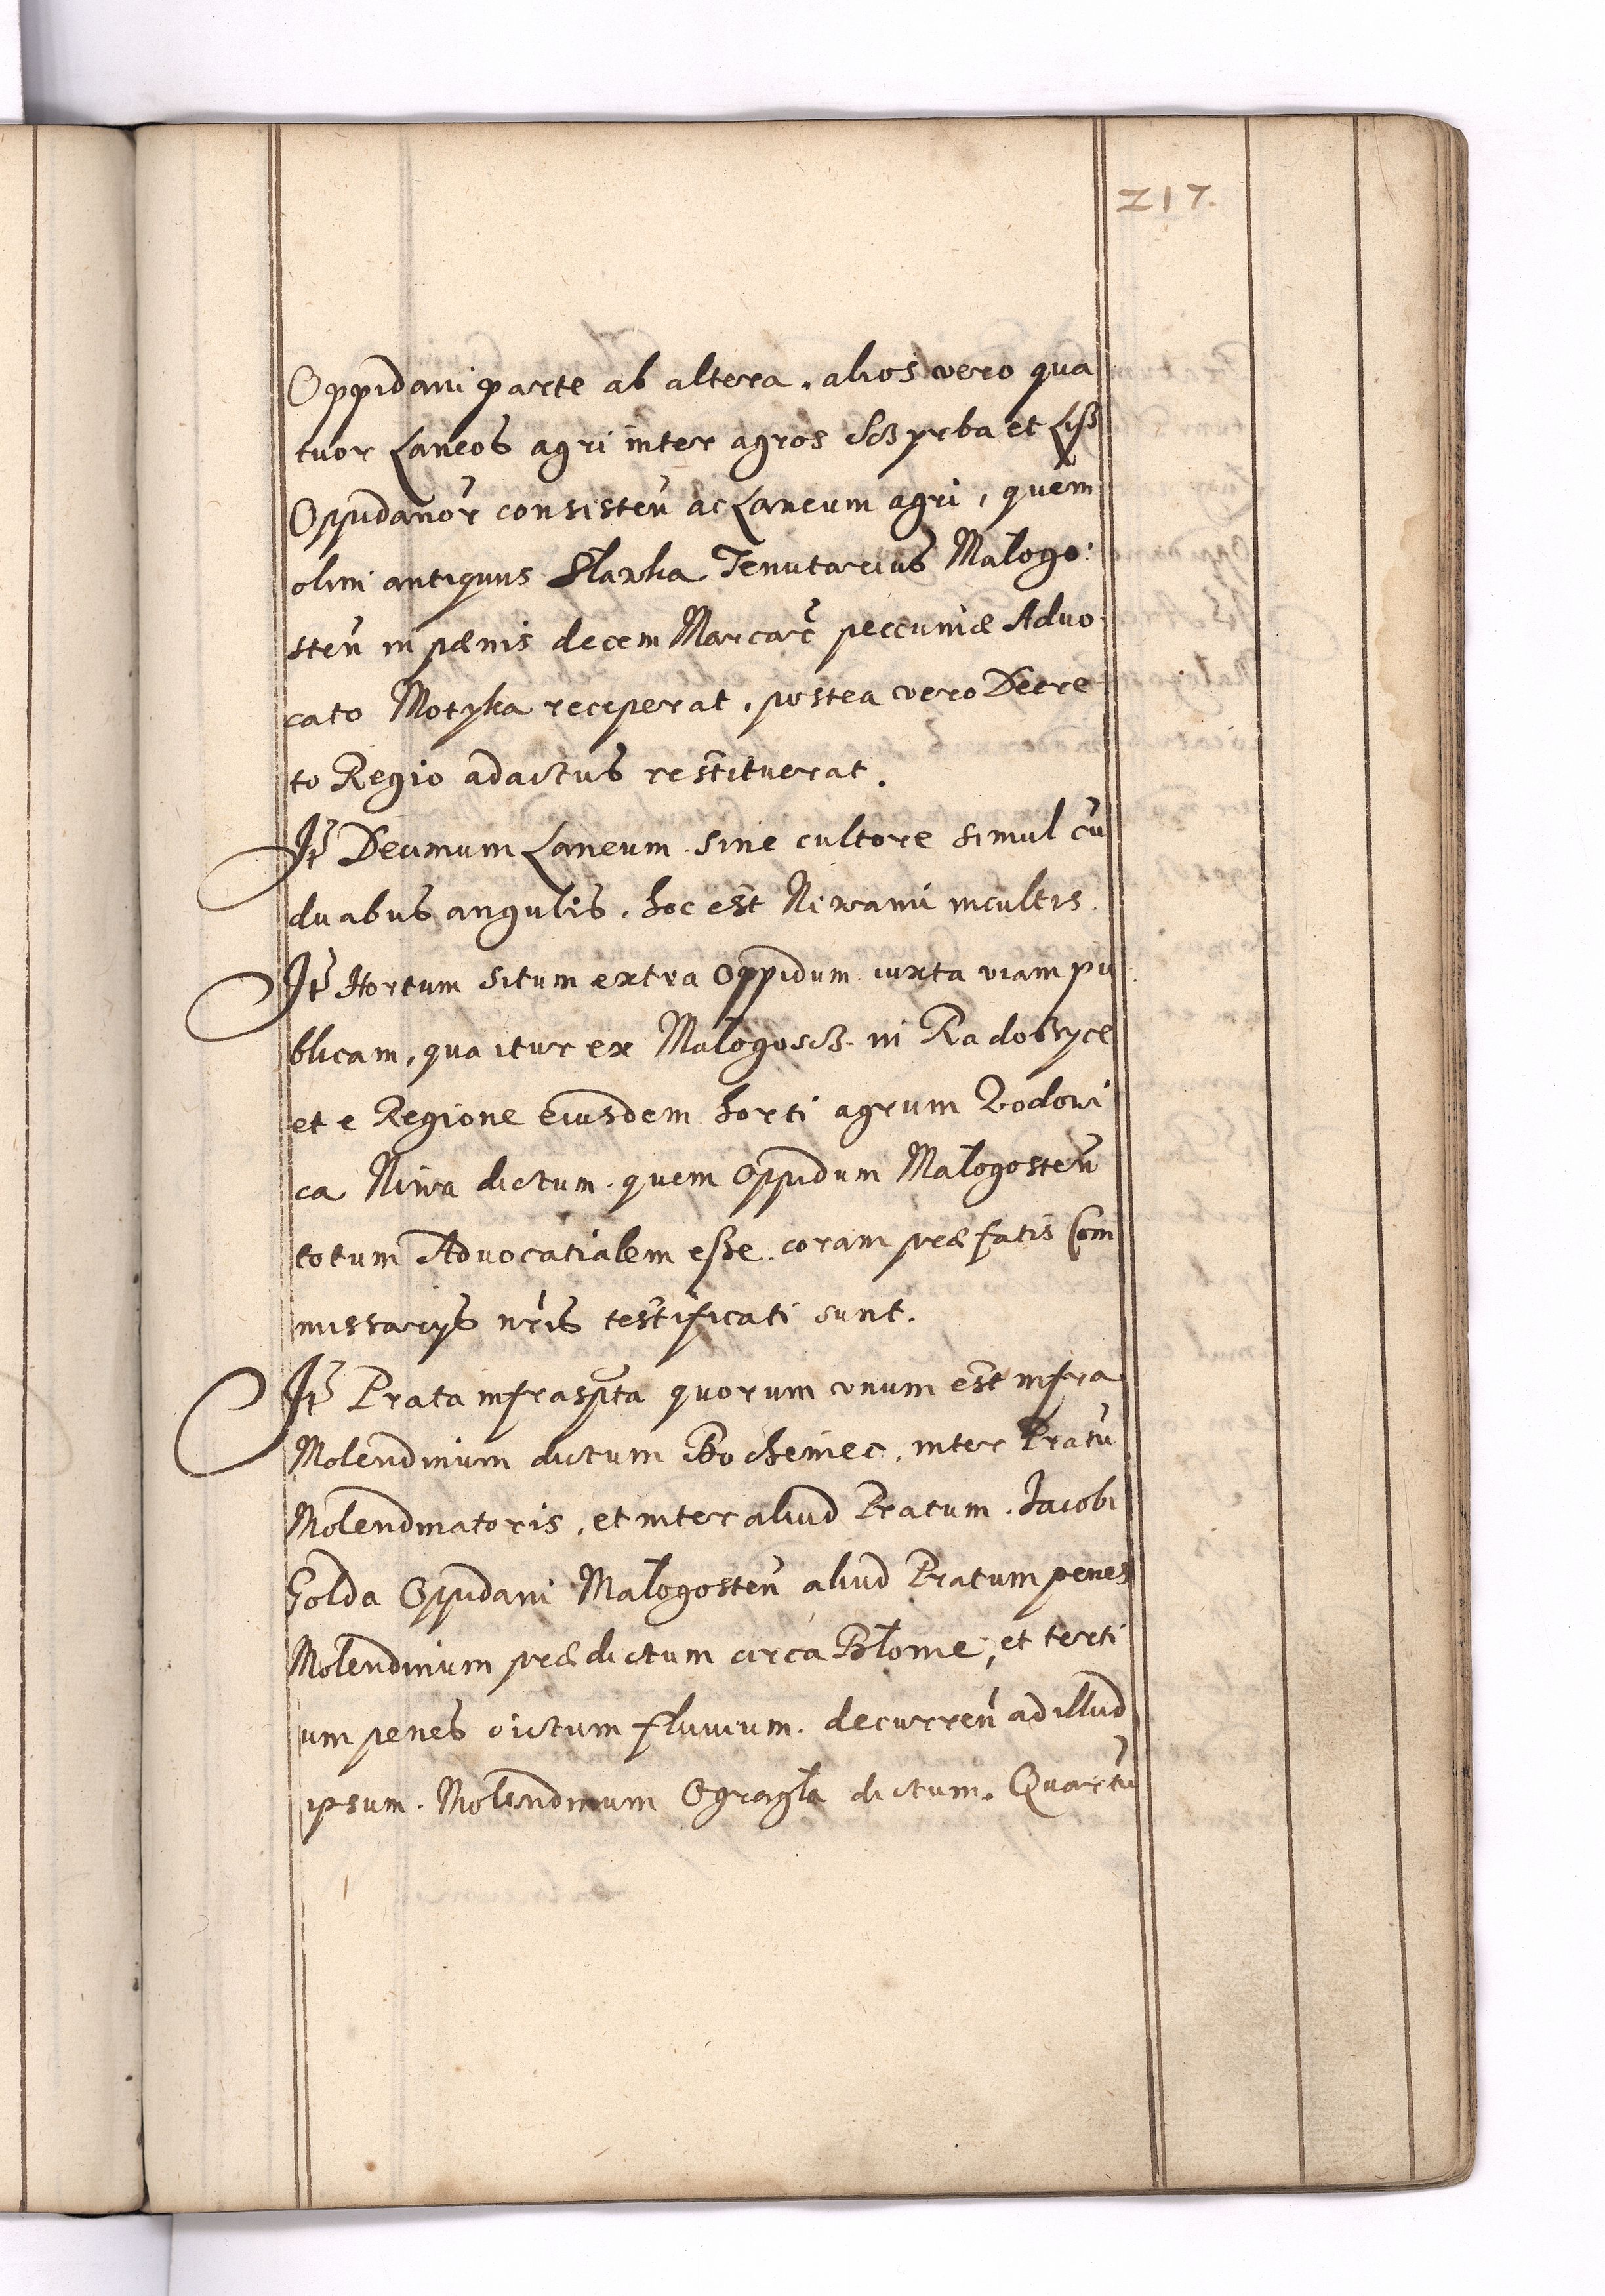 217.
Oppidani parte ab altera. alios vero qua
tuor Laneos agri inter agros Sczyrba et Liss
Oppidanor̃ consisteñ ac Laneum agri, quem
olim antiquus Slaxka Tenutarius Małogo:
steñ in pænis decem Marcar̃ peccuniæ Advo
cato Motyka receperat, postea vero Decre
to Regio adactus restituerat.
It̃ Decimum Laneum sine cultore simul cũ
duabus angulis, hoc est Niwami incultis.
It̃ Hortum situm extra Oppidum iuxta viam pu
blicam, qua itur ex Małogoscz in Radoszyce
et e Regione eiusdem horti agrum Vodowi
ca Niwa dictum. quem Oppidum Małogosteñ
totum Advocatialem esse. coram præfatis Com
missarys nr̃is testificati sunt.
It̃ Prata infrasp̃ta quorum vnum est infra
Molendinum dictum Bocheniec, inter Pratũ
Molendinatoris, et inter aliud Pratum Jacobi
Golda Oppidani Małogosteñ aliud Pratum penes
Molendinum prædictum circa Błonie; et terti
um penes dictum fluvium. decurreñ ad illud
ipsum. Molendinum Ogragła dictum. Quartũ